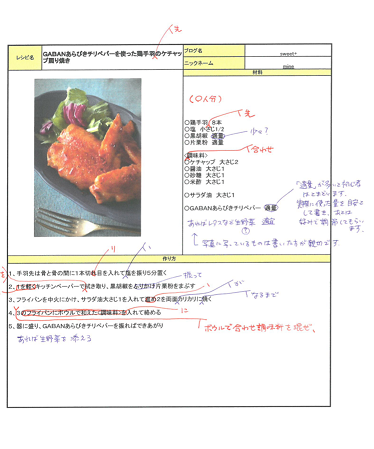 先
レシピ名
GABANあらびきチリペーパーを使った鶏手羽のケチャッ
プ照り焼き
ブログ名
sweet+
ニックネーム
mine
材料
(〇人分)
先
〇鶏手羽 8本
〇塩 小さじ1/2
〇黒胡椒 適量
少々?
〇片栗粉 適量
合わせ
調味料>
〇ケチャップ 大さじ2
〇醤油 大さじ1
〇砂糖 大さじ1
〇米酢 大さじ1
〇サラダ油 大さじ1
〇GABANあらびきチリペーパー 適量
あればレタスなど生野菜 適宜
写真に写っているものは書いた方が親切です
作り方
り
い
1、手羽先は骨と骨の間に1本切れ目を入れて塩を振り5分置く
振って
2、1を軽くキッチンペーパーで拭き取り、黒胡椒をふりかけ片栗粉をまぶす
が
なるまで
3、フライパンを中火にかけ、サラダ油大さじ1を入れて温め2を両面カリカリに焼く
に
4、3のフライパンにボウルで和えた<調味料>を入れて絡める
ボウルで合わせ調味料を混ぜ、
5、器に盛り、GABANあらびきチリペーパーを振ればできあがり
あれば生野菜を添える